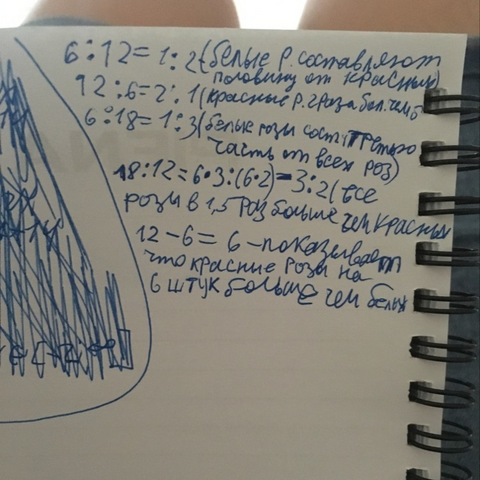 6:12=1:2(белые р. составляют
половину от красных)
12:6=2:1(красные р. 2 раза бол. чем б
6:18=1:3(белые розы сост. третью
часть от всех роз)
18:12=6·3:(6·2)=3:2(все
розы в 1,5 роз больше чем красных
12-6=6-показывает
что красние розы на
6 штук больше чем белых